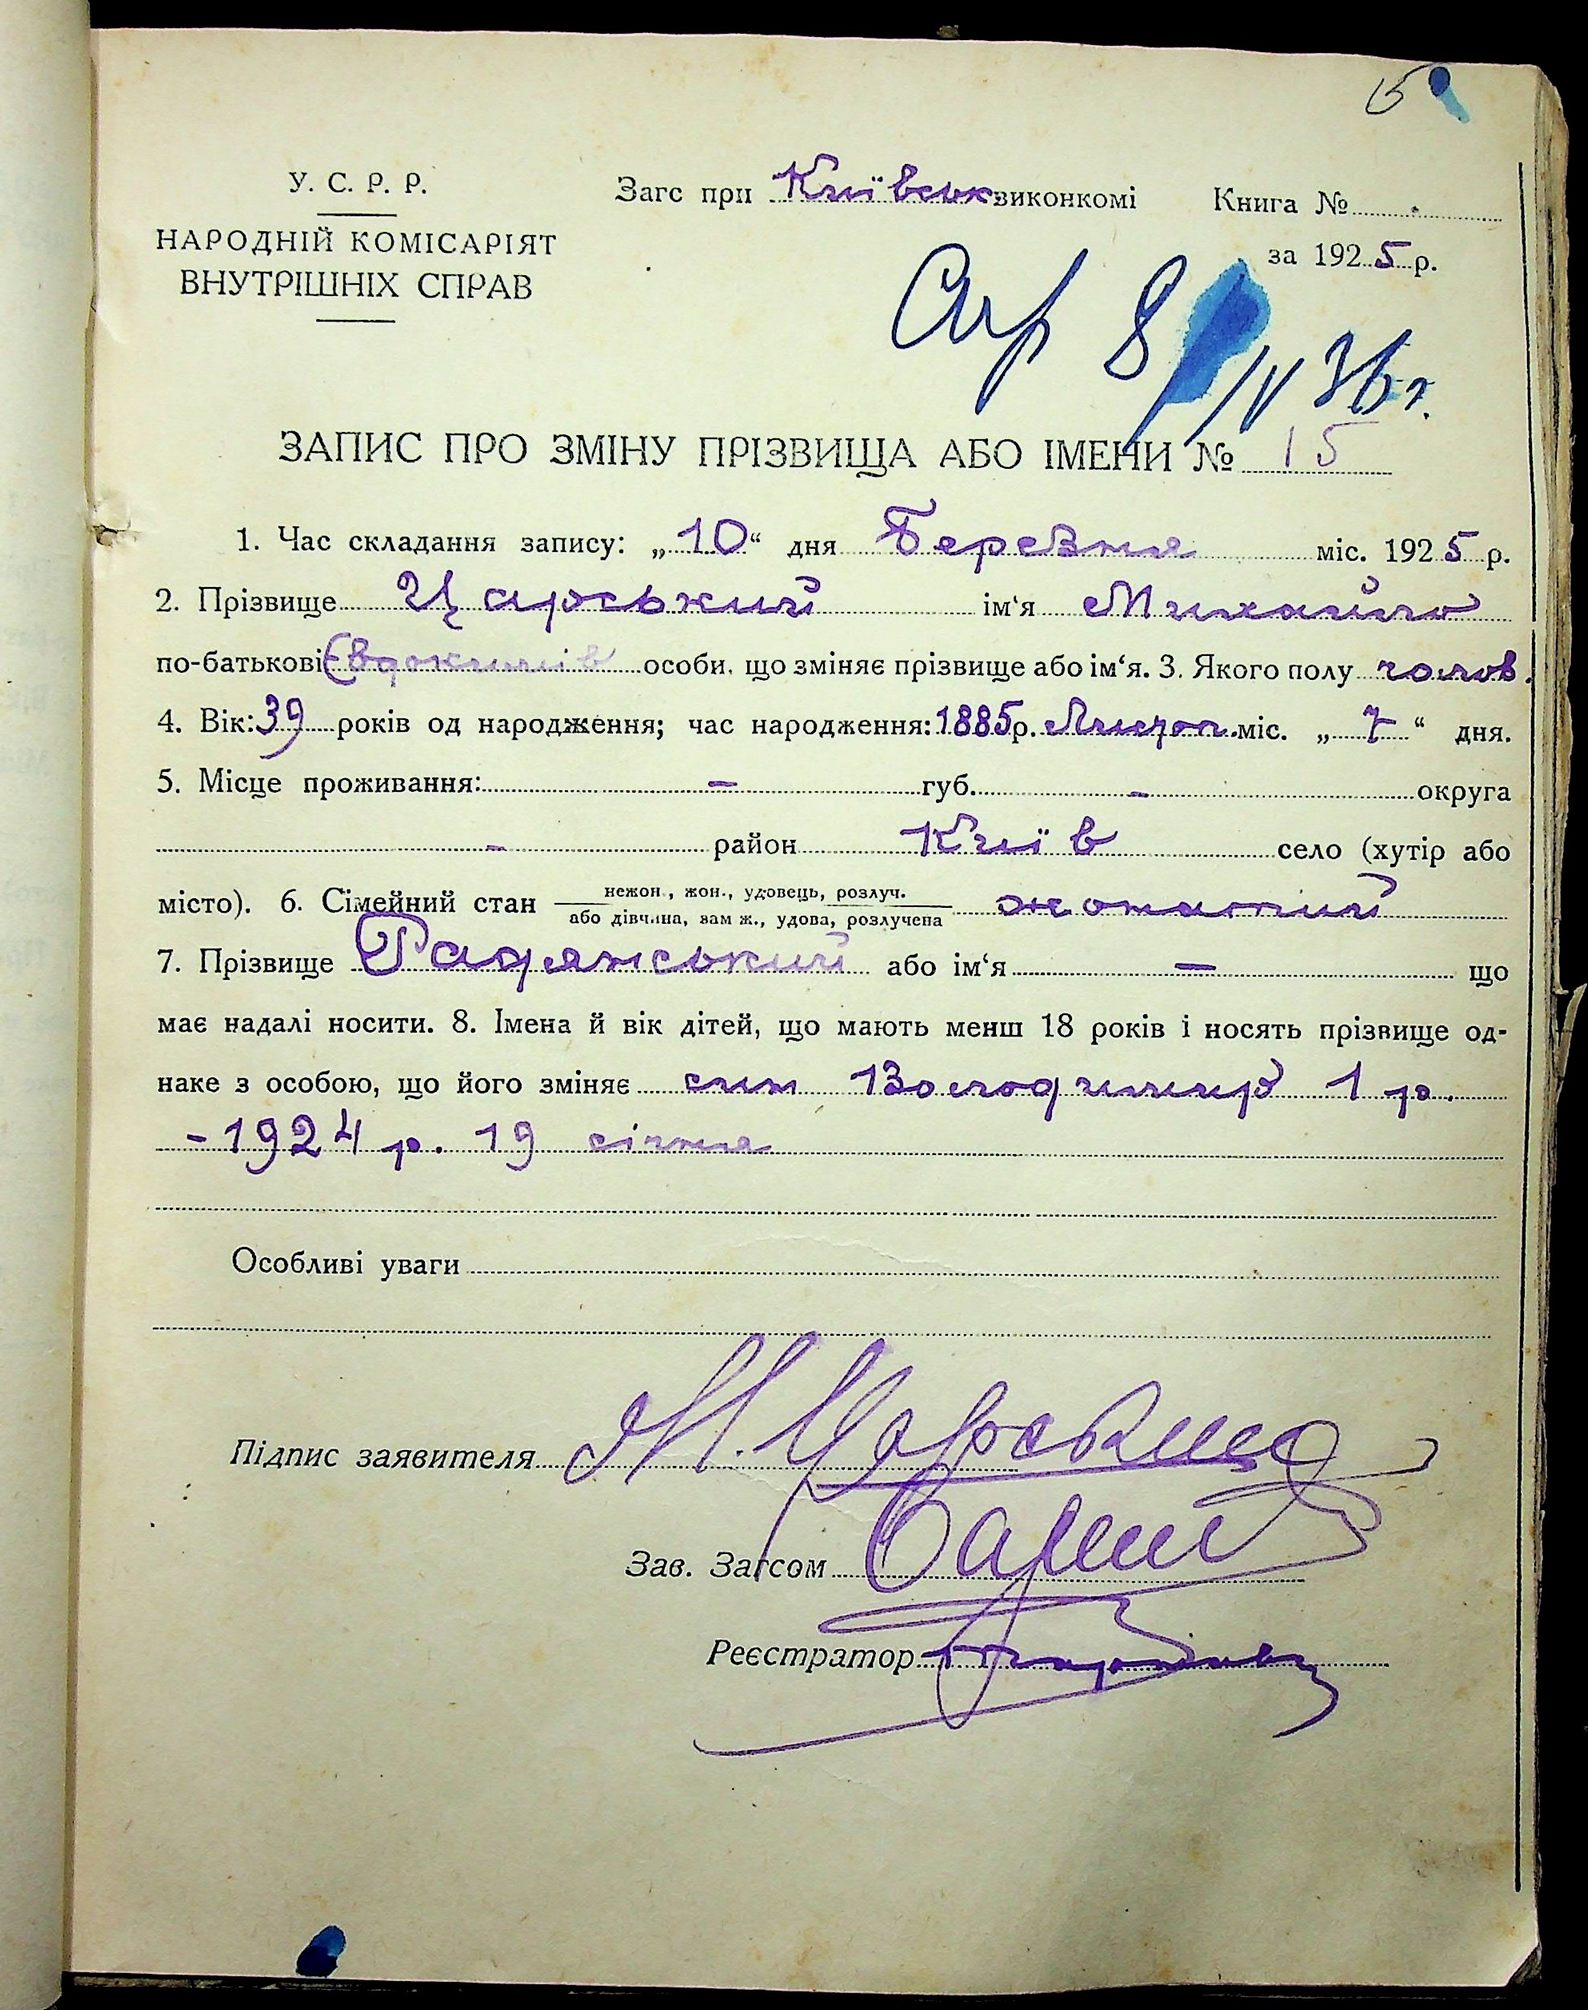 15
У. С. Р. Р.
НАРОДНІЙ КОМІСАРІЯТ
ВНУТРІШНІХ СПРАВ
Загс при Київськ. виконкомі Книга №
за 1925 р.
8/IV 36 г.
ЗАПИС ПРО ЗМІНУ ПРІЗВИЩА АБО ІМЕНИ № 15
1. Час складання запису: „10“ дня Березня міс. 1925 р.
2. Прізвище Царський ім‘я Михайло
по-батькові Євдокимів особи, що зміняє прізвище або ім‘я. 3. Якого полу чолов.
4. Вік: 39 років од народження; час народження: 1885 р. Листоп. міс. „7“ дня.
5. Місце проживання: – губ. – округа
– район Київ село (хутір або
місто). 6. Сімейний стан нежон., жон., удовець, розлуч. або дівчина, зам ж., удова, розлучена жонатий
7. Прізвище Радянський або ім‘я – що
має надалі носити. 8. Імена й вік дітей, що мають менш 18 років і носять прізвище од-
наке з особою, що його зміняє син Володимир 1 р.
- 1924 р. 19 січня
Особливі уваги
Підпис заявителя М. Царський
Зав. Загсом
Реєстратор